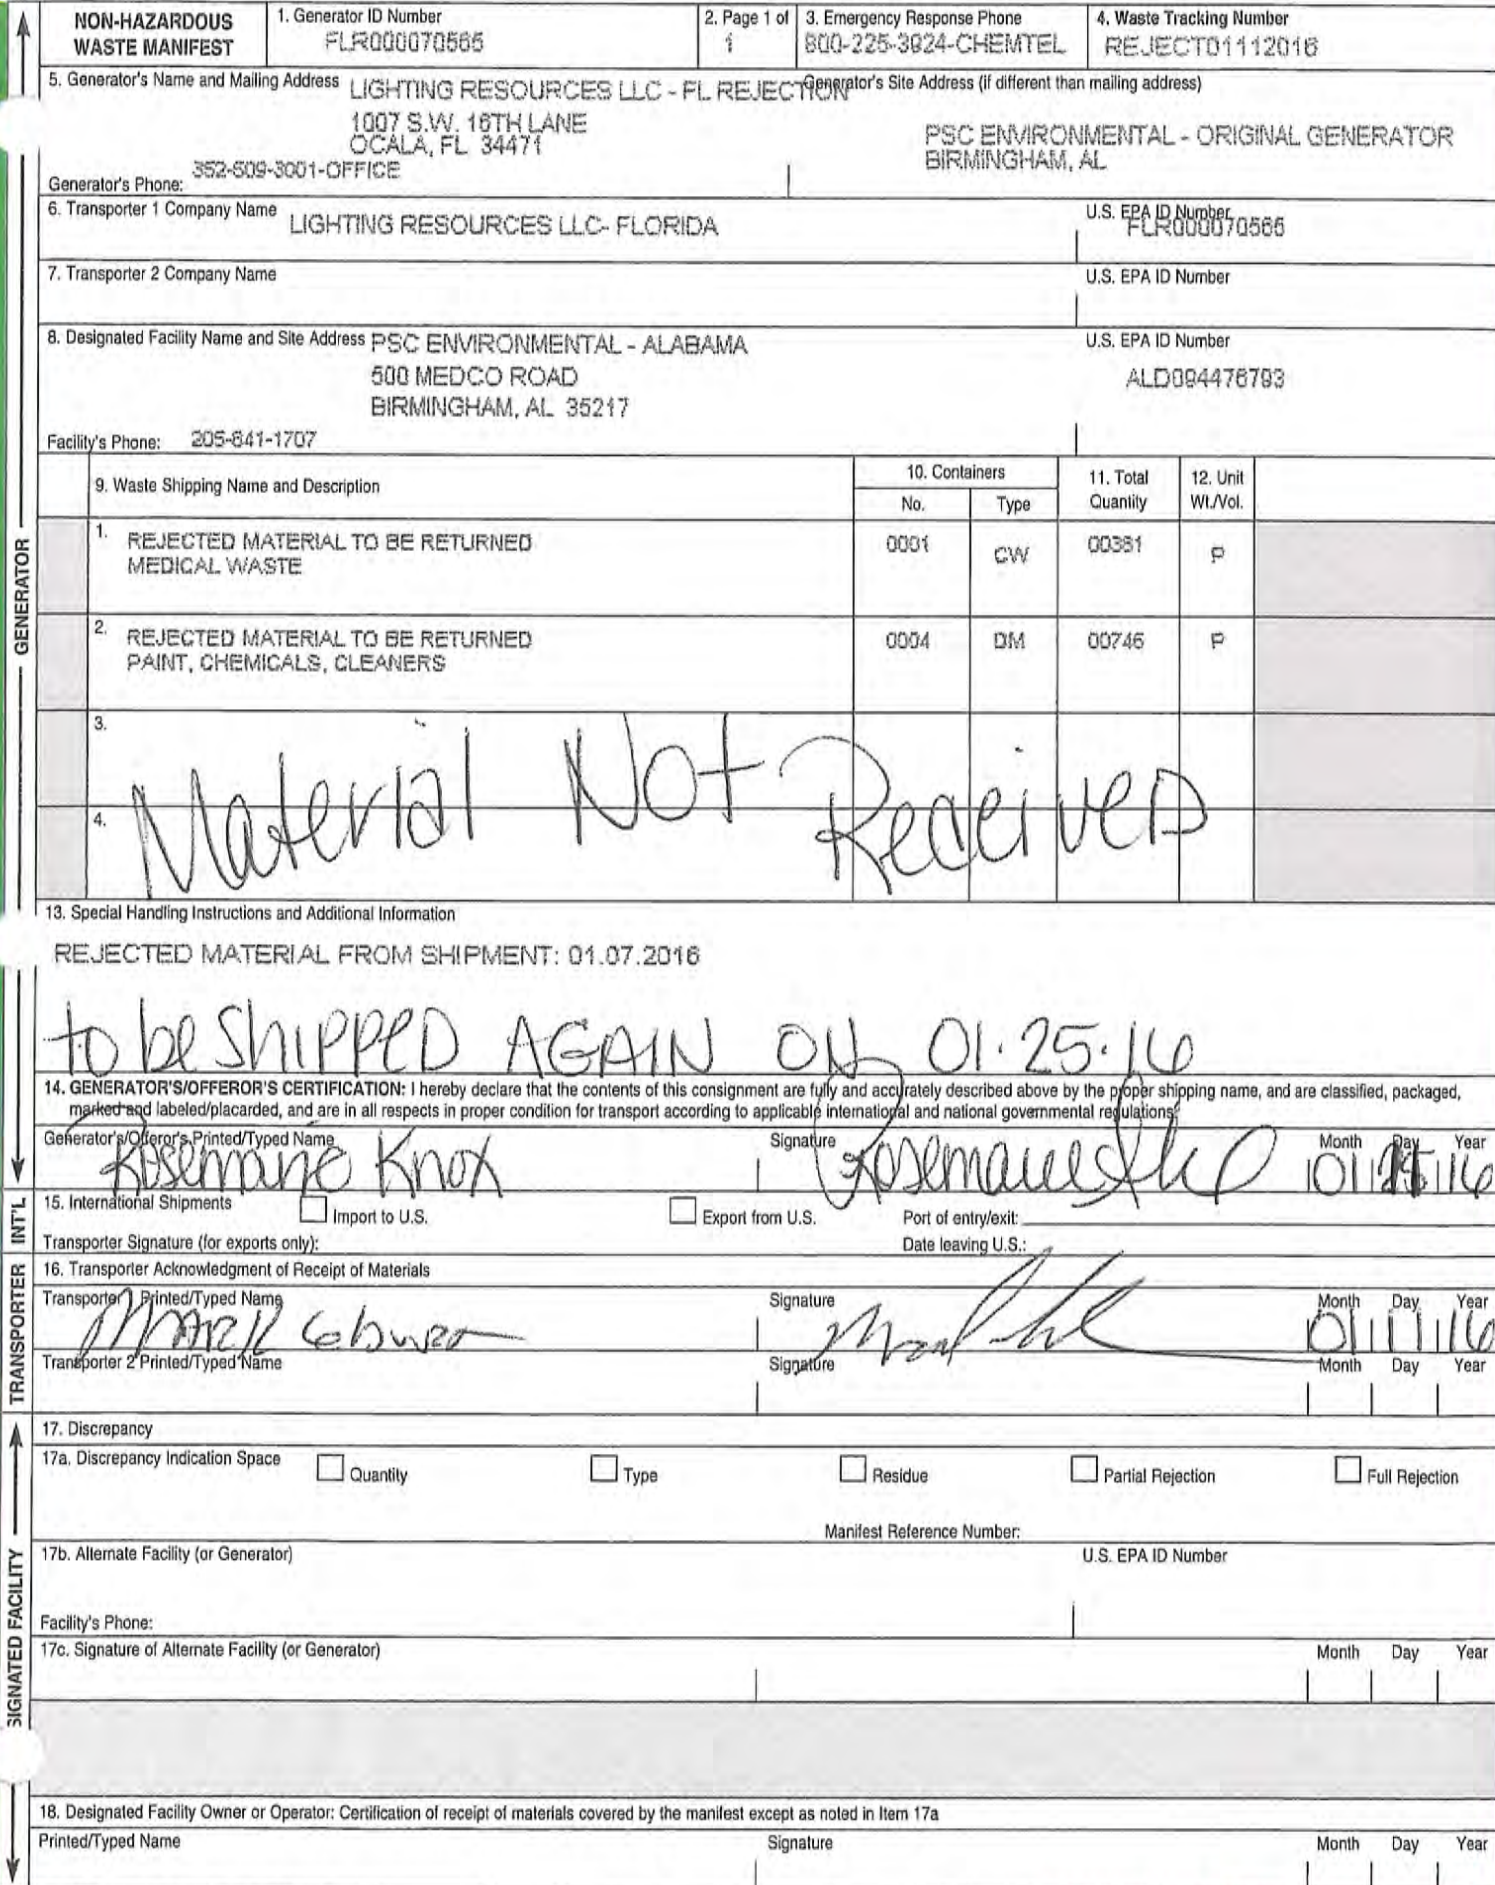 NON-HAZARDOUS
WASTE MANIFEST
1. Generator ID Number
FLR000070565
2. Page 1 of
1
3. Emergency Response Phone
800-225-3924-CHEMTEL
4. Waste Tracking Number
REJECT01112016
5. Generator's Name and Mailing Address
LIGHTING RESOURCES LLC - FL REJECTION
1007 S.W. 16TH LANE
OCALA, FL 34471
Generator's Site Address (if different than mailing address)
PSC ENVIRONMENTAL - ORIGINAL GENERATOR
BIRMINGHAM, AL
Generator's Phone: 352-509-3001-OFFICE
6. Transporter 1 Company Name
LIGHTING RESOURCES LLC- FLORIDA
U.S. EPA ID Number
FLR000070565
7. Transporter 2 Company Name
U.S. EPA ID Number
8. Designated Facility Name and Site Address
PSC ENVIRONMENTAL - ALABAMA
500 MEDCO ROAD
BIRMINGHAM, AL 35217
U.S. EPA ID Number
ALD094476793
Facility's Phone: 205-841-1707
9. Waste Shipping Name and Description
10. Containers
No.
Type
11. Total
Quantity
12. Unit
Wt./Vol.
1.
REJECTED MATERIAL TO BE RETURNED
MEDICAL WASTE
0001
CW
00381
P
2.
REJECTED MATERIAL TO BE RETURNED
PAINT, CHEMICALS, CLEANERS
0004
DM
00746
P
3.
Material Not Received
4.
13. Special Handling Instructions and Additional Information
REJECTED MATERIAL FROM SHIPMENT: 01.07.2016
to be SHIPPED AGAIN ON 01.25.16
14. GENERATOR'S/OFFEROR'S CERTIFICATION: I hereby declare that the contents of this consignment are fully and accurately described above by the proper shipping name, and are classified, packaged,
marked and labeled/placarded, and are in all respects in proper condition for transport according to applicable international and national governmental regulations.
Generator's/Offeror's Printed/Typed Name
Rosemarie Knox
Signature
Month Day Year
01 25 16
15. International Shipments
Import to U.S.
Export from U.S.
Port of entry/exit:
Transporter Signature (for exports only):
Date leaving U.S.:
16. Transporter Acknowledgment of Receipt of Materials
Transporter 1 Printed/Typed Name
MARK
Signature
Month Day Year
01 11 16
Transporter 2 Printed/Typed Name
Signature
Month Day Year
17. Discrepancy
17a. Discrepancy Indication Space
Quantity
Type
Residue
Partial Rejection
Full Rejection
Manifest Reference Number:
17b. Alternate Facility (or Generator)
U.S. EPA ID Number
Facility's Phone:
17c. Signature of Alternate Facility (or Generator)
Month Day Year
18. Designated Facility Owner or Operator: Certification of receipt of materials covered by the manifest except as noted in Item 17a
Printed/Typed Name
Signature
Month Day Year
GENERATOR
INT'L
TRANSPORTER
SIGNATED FACILITY